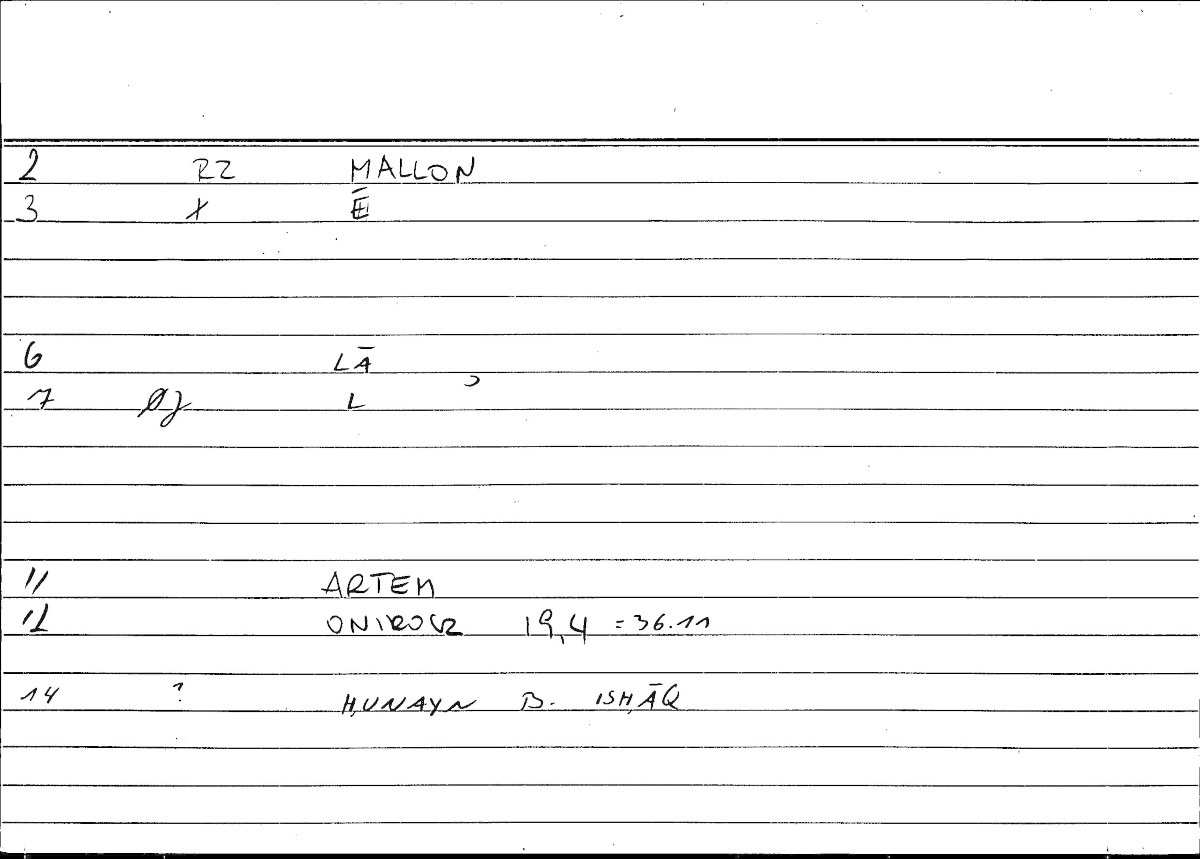 2 RZ MALLON
3 X Ē
6 LĀ
7 L
11 ARTEM
12 ONIROCR 19,4 = 36.11
14 ? ḤUNAYN B. ISḤĀQ